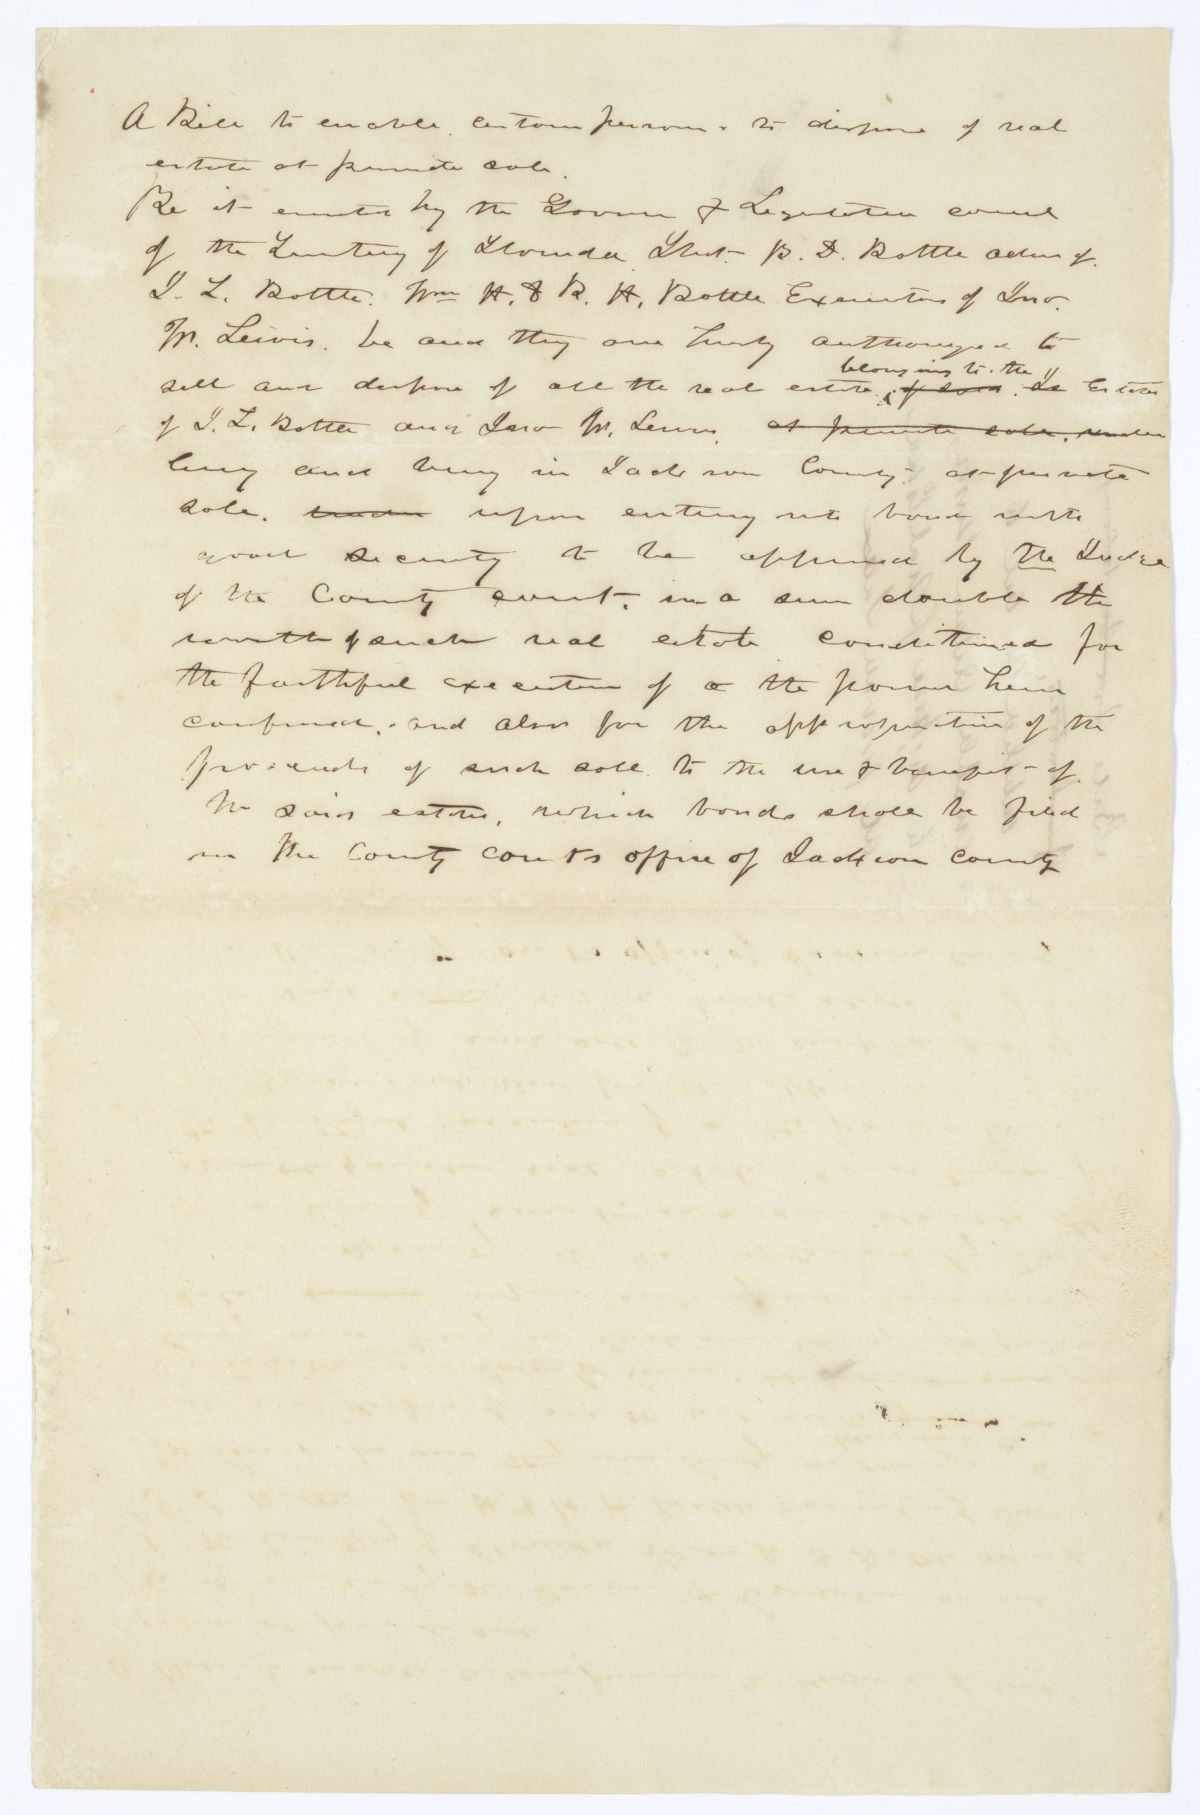 A Bill to enable certain persons to dispose of real
estate at private sale.
Be it enacted by the Governor & Legislative council
of the Territory of Florida That B. D. Bottle admr of
T. L. Bottle. Wm H. & B. H. Bottle Executors of Jno.
W. Lewis. be and they are hereby authorized to
belonging to the
sell and dispose of all the real estate of said Estates
of T. L. Bottle and Jno W. Lewis, at private sale, under
lying and being in Jackson County. at private
sale. under upon entering into bond with
good security to be approved by the Judge
of the County court, in a sum double the
worth of such real estate conditioned for
the faithful execution of a the power herein
conferred, and also for the appropriation of the
proceeds of such sale to the use & benefit of
the said estates, which bonds shall be filed
in the County courts office of Jackson county